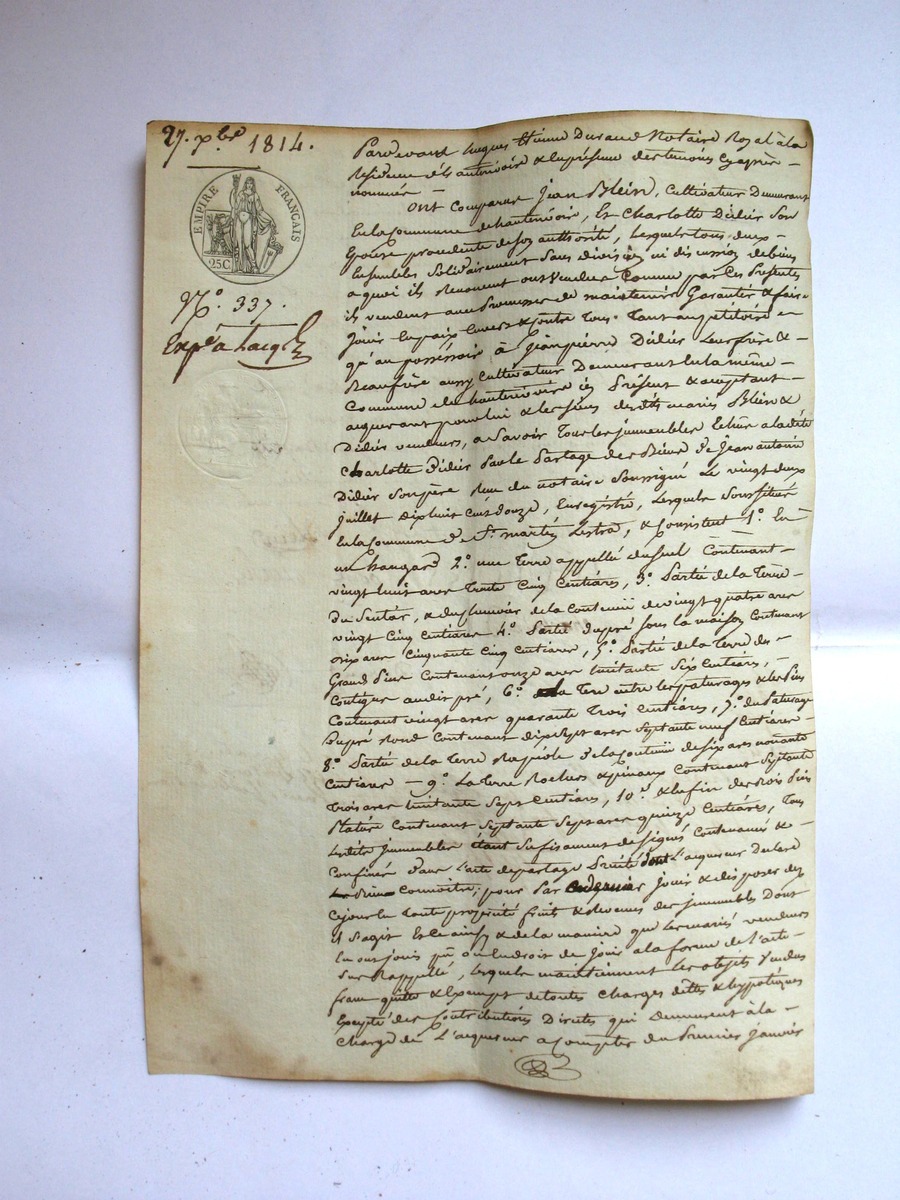 27. xbre 1814.
EMPIRE FRANÇAIS
25C
N° 337.
Expé à l'acqr
Pardevant hugues Etienne Durand Notaire Royal à la
Résidence d'és hauterivoire & en présence des témoins cy après
nommés
ont Comparus Jean Blein, Cultivateur Demeurant
En la Commune de hauterivoire, Et Charlotte Didier Son
Epouse procedente de Son authorité, Lesquels tous deux
Ensembles Solidairement Sans division ni discussion de biens
a quoi ils Renoncent ont Vendu & Comme par Ces Présentes
ils vendent avec Promesse de maintenir Garantir & faire
Jouir En paix Envers & Contre Tous Tant au pétitoire
qu'au possessoir à Jean pierre Didier Leur frère &
Beaufrère aussy Cultivateur Demeurant En la même
Commune de hauterivoire icy Présent & acceptant
acquerant pour lui & les siens desdits mariés Blein &
Didier vendeurs, a Savoir Tous les immeubles Echus a la dite
Charlotte Didier Par le Partage des Biens de Jean antoine
Didier Son père Reçu du notaire Soussigné Le vingt deux
juillet dix huit cent douze, Enregistré, Lesquels Sont Situés
En la Commune de St martin Lestra, & Consistent 1° En
un hangard 2° une Terre appellée du Contenant
vingt huit ares Trente Cinq Centiares, 3° Partie de la Terre
du Sentier, & de la Contenue de vingt quatre ares
vingt Cinq Centiares 4° Partie du pré Sous la maison Contenant
six ares Cinquante Cinq Centiares, 5° Partie de la Terre des
Grand Contenant onze ares huitante Six Centiares,
Contigue au dit pré, 6° la Terre entre les paturages & les
Contenant vingt ares quarante Trois Centiares, 7° du Paturage
Dupré Rond Contenant dix Sept ares Septante neuf Centiares
8° Partie de la Terre de la Contenue de six ares nonante
Centiares 9° La Terre Rochers & Contenant Septante
Trois ares huitante Sept Centiares, 10° & Enfin des Bois
Contenant Septante Sept ares quinze Centiares, Tous
Lesdits Immeubles étant Suffisament designés Contenancés &
Confinés Dans L'acte de partage Précité dont L'acquereur Declare
Connoitre; pour Par ce dernier Jouir & disposer dès
Ce jour En Toute propriété fruits & Revenus des Immeubles Dont
il S'agit Et Ce ainsy & de la manière que les mariés vendeurs
En ont jouis ou En Droit de Jouir a la forme de l'acte
Sur Rappellé, Lesquels maintiennent Les objets Vendus
franc quitte & Exempt de toutes Charges dettes & hypotèques
Excepté des Contributions Directes qui Demeurent à la
Charge de L'acquereur a Compter du Premier janvier